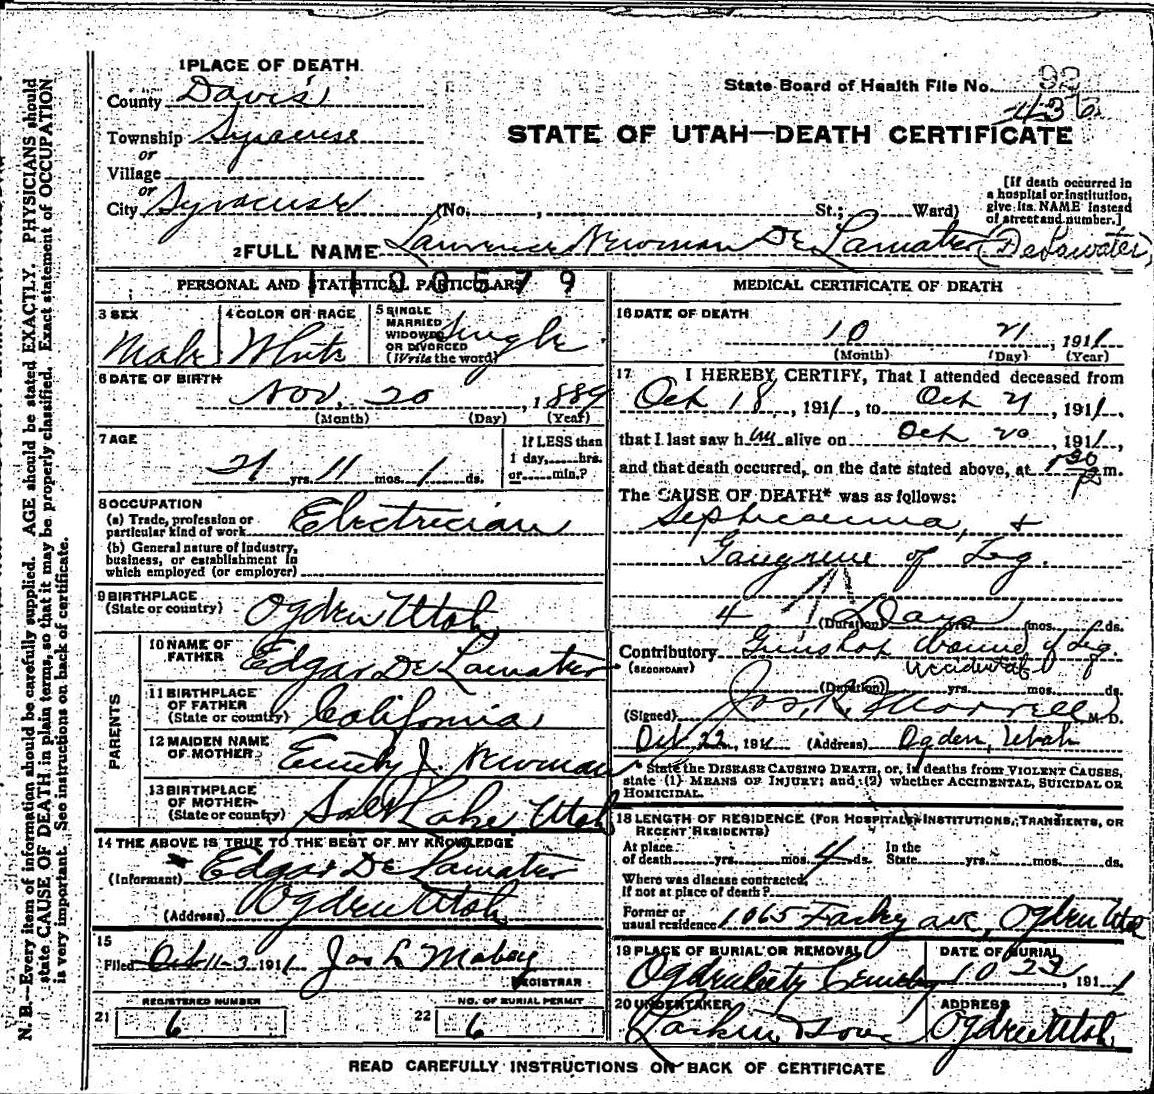 1 PLACE OF DEATH
County Davis
Township Syracuse
or
Village
or
City Syracuse (No. , St.; Ward)
State Board of Health File No. 92
436
STATE OF UTAH—DEATH CERTIFICATE
[If death occurred in
a hospital or institution,
give its NAME instead
of street and number.]
2 FULL NAME Lawrence Newman De Lamater (DeLawater)
1100579
PERSONAL AND STATISTICAL PARTICULARS
3 SEX
Male
4 COLOR OR RACE
White
5 SINGLE
MARRIED
WIDOWED
OR DIVORCED
(Write the word)
Single
6 DATE OF BIRTH
Nov. 20, 1889
(Month) (Day) (Year)
7 AGE
21 yrs. 11 mos. 1 ds.
If LESS than
1 day, hrs.
or min.?
8 OCCUPATION
(a) Trade, profession or
particular kind of work Electrician
(b) General nature of industry,
business, or establishment in
which employed (or employer)
9 BIRTHPLACE
(State or country) Ogden Utah
PARENTS
10 NAME OF
FATHER Edgar De Lamater
11 BIRTHPLACE
OF FATHER
(State or country) California
12 MAIDEN NAME
OF MOTHER Emily J. Newman
13 BIRTHPLACE
OF MOTHER
(State or country) Salt Lake Utah
14 THE ABOVE IS TRUE TO THE BEST OF MY KNOWLEDGE
(Informant) Edgar De Lamater
(Address) Ogden Utah
15
Filed Oct 11-3 1911 Jos L Mabey
REGISTRAR
REGISTERED NUMBER
21 6
NO. OF BURIAL PERMIT
22 6
MEDICAL CERTIFICATE OF DEATH
16 DATE OF DEATH
10 21, 1911
(Month) (Day) (Year)
17 I HEREBY CERTIFY, That I attended deceased from
Oct 18, 1911, to Oct 21, 1911,
that I last saw him alive on Oct 20, 1911,
and that death occurred, on the date stated above, at 1 30 P m.
The CAUSE OF DEATH* was as follows:
Septicaemia, &
Gangrene of Leg.
4 Days
(Duration) yrs. mos. ds.
Contributory Gunshot Wound of Leg.
(SECONDARY) Accidental
(Duration) yrs. mos. ds.
(Signed) Jos. R. Morrell M. D.
Oct 22, 1911 (Address) Ogden, Utah
*State the DISEASE CAUSING DEATH, or, in deaths from VIOLENT CAUSES,
state (1) MEANS OF INJURY; and (2) whether ACCIDENTAL, SUICIDAL OR
HOMICIDAL.
18 LENGTH OF RESIDENCE (FOR HOSPITALS, INSTITUTIONS, TRANSIENTS, OR
RECENT RESIDENTS)
At place
of death yrs. mos. 4 ds.
In the
State yrs. mos. ds.
Where was disease contracted,
If not at place of death?
Former or
usual residence 1065 ave, Ogden Utah
19 PLACE OF BURIAL OR REMOVAL
Ogden City Cemetery
DATE OF BURIAL
10 23, 1911
20 UNDERTAKER
Larkin & Sons
ADDRESS
Ogden Utah
READ CAREFULLY INSTRUCTIONS ON BACK OF CERTIFICATE
N. B.—Every item of information should be carefully supplied. AGE should be stated EXACTLY. PHYSICIANS should
state CAUSE OF DEATH in plain terms, so that it may be properly classified. Exact statement of OCCUPATION
is very important. See instructions on back of certificate.